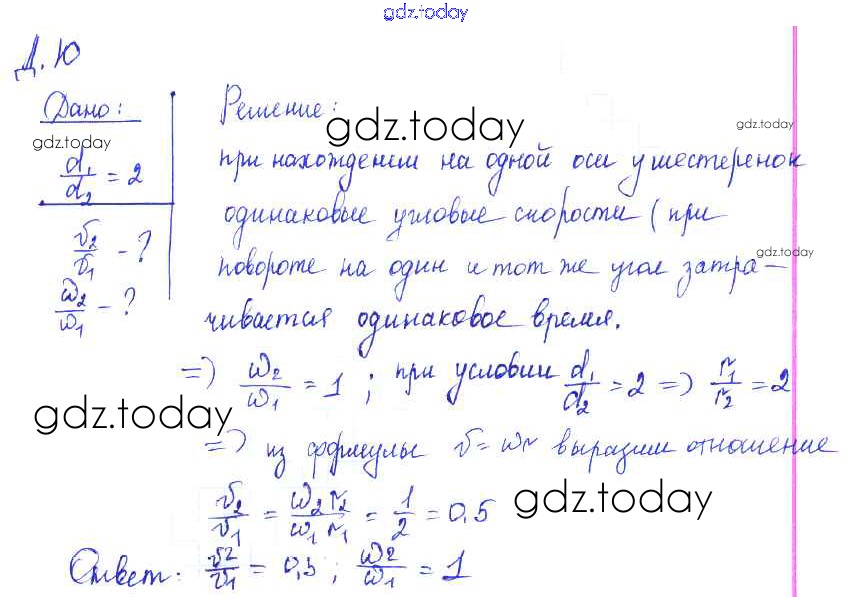 gdz.today
Д. Ю
Дано:
gdz.today
d₁/d₂ = 2
v₂/v₁ - ?
ω₂/ω₁ - ?
Решение:
gdz.today
gdz.today
при нахождении на одной оси у шестеренок
одинаковые угловые скорости (при
gdz.today
повороте на один и тот же угол затра-
чивается одинаковое время.
=> ω₂/ω₁ = 1 ; при условии d₁/d₂ = 2 => r₁/r₂ = 2
gdz.today
=> из формулы v = ωr выразим отношение
v₂/v₁ = ω₂ r₂/ω₁ r₁ = 1/2 = 0,5
gdz.today
Ответ: v₂/v₁ = 0,5 ; ω₂/ω₁ = 1